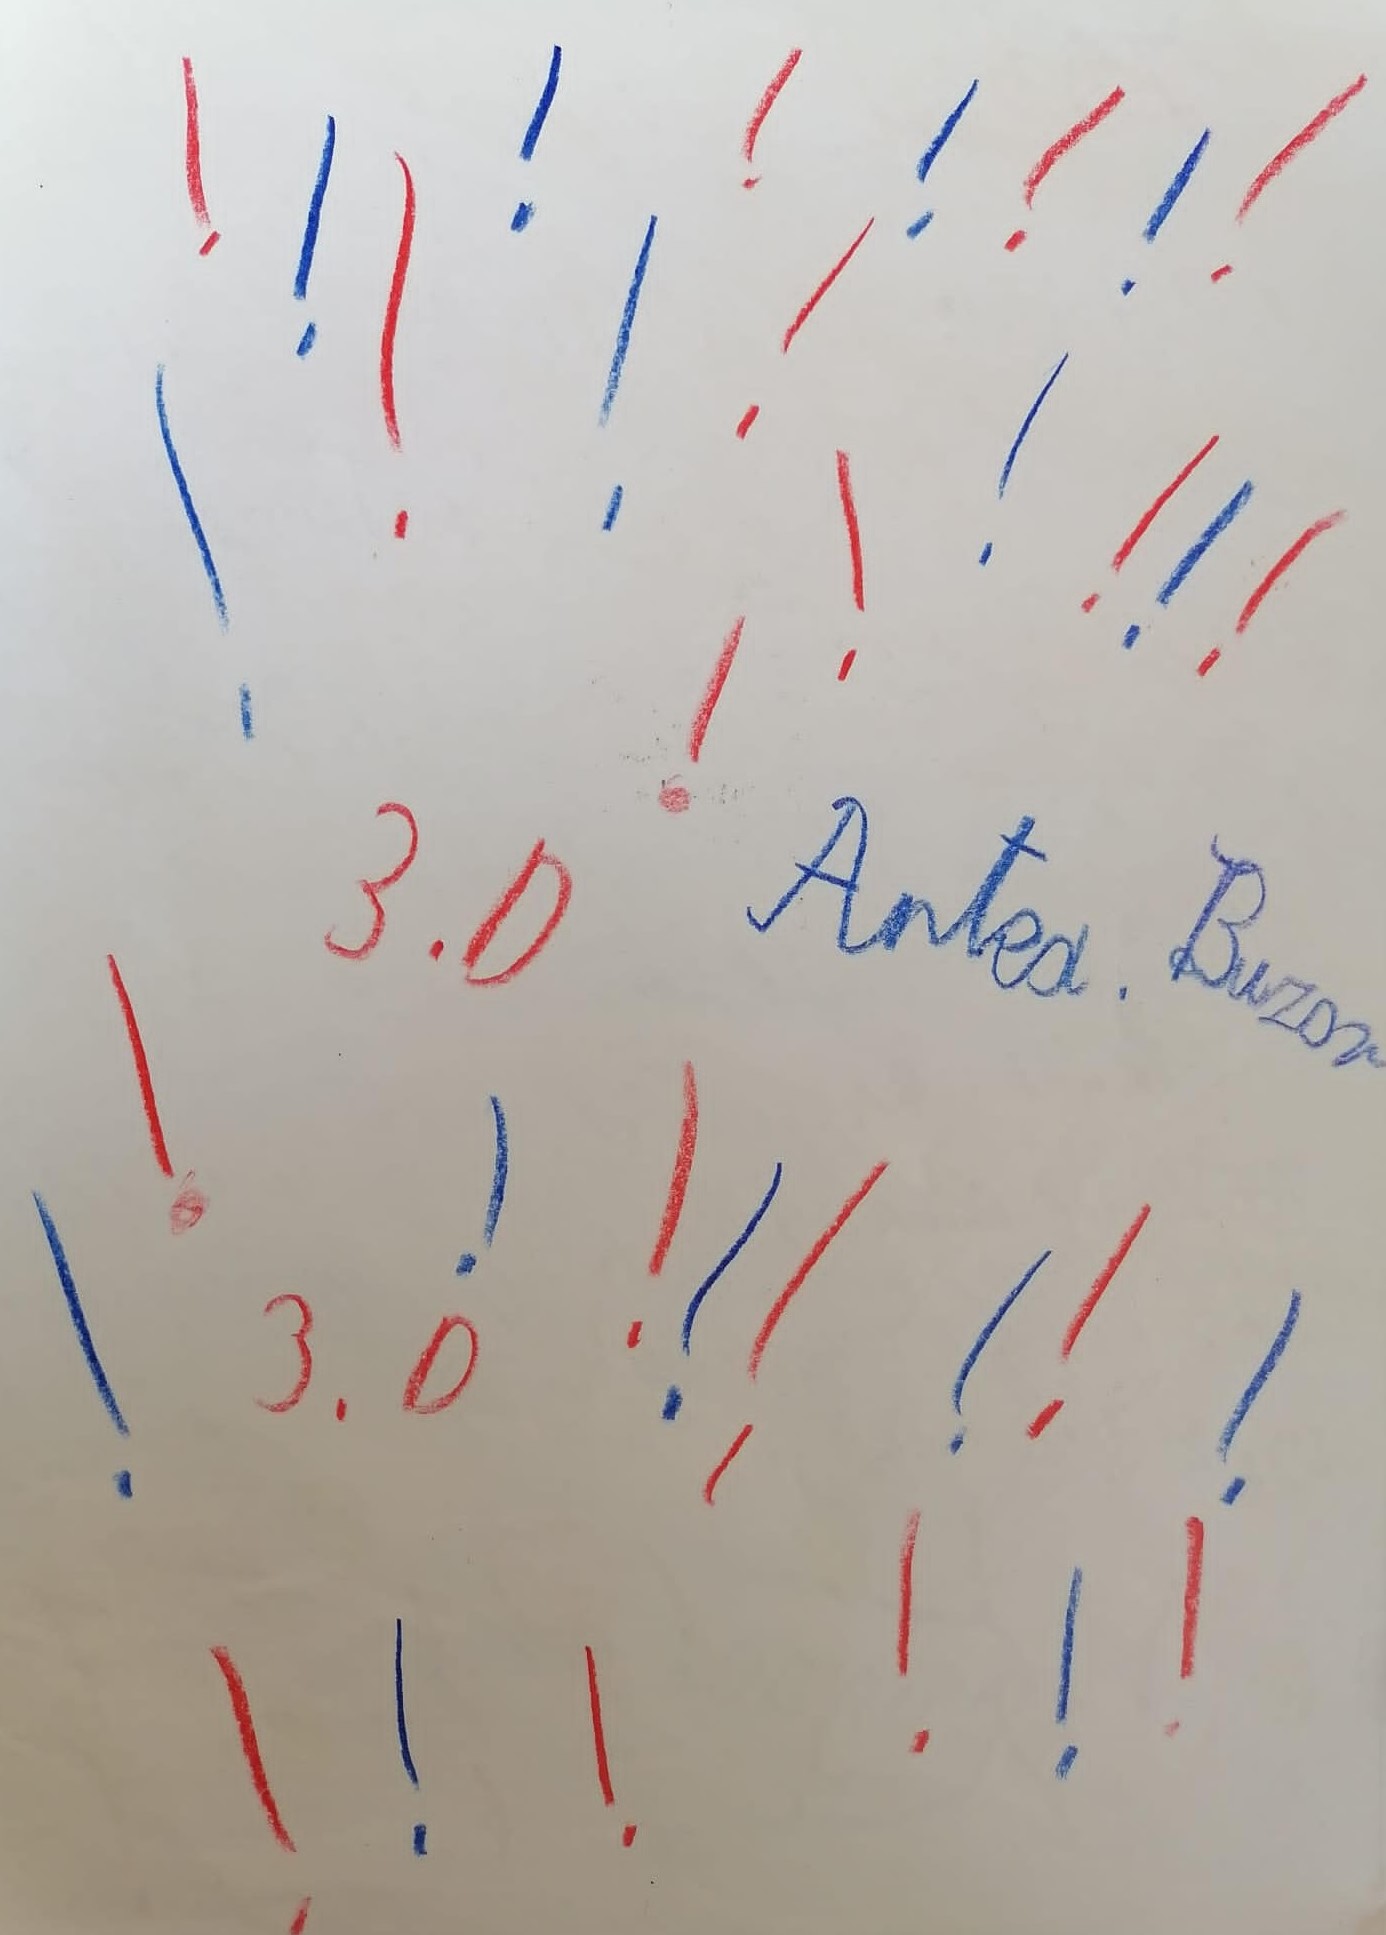 3.D
Antea. Buzon
3. D